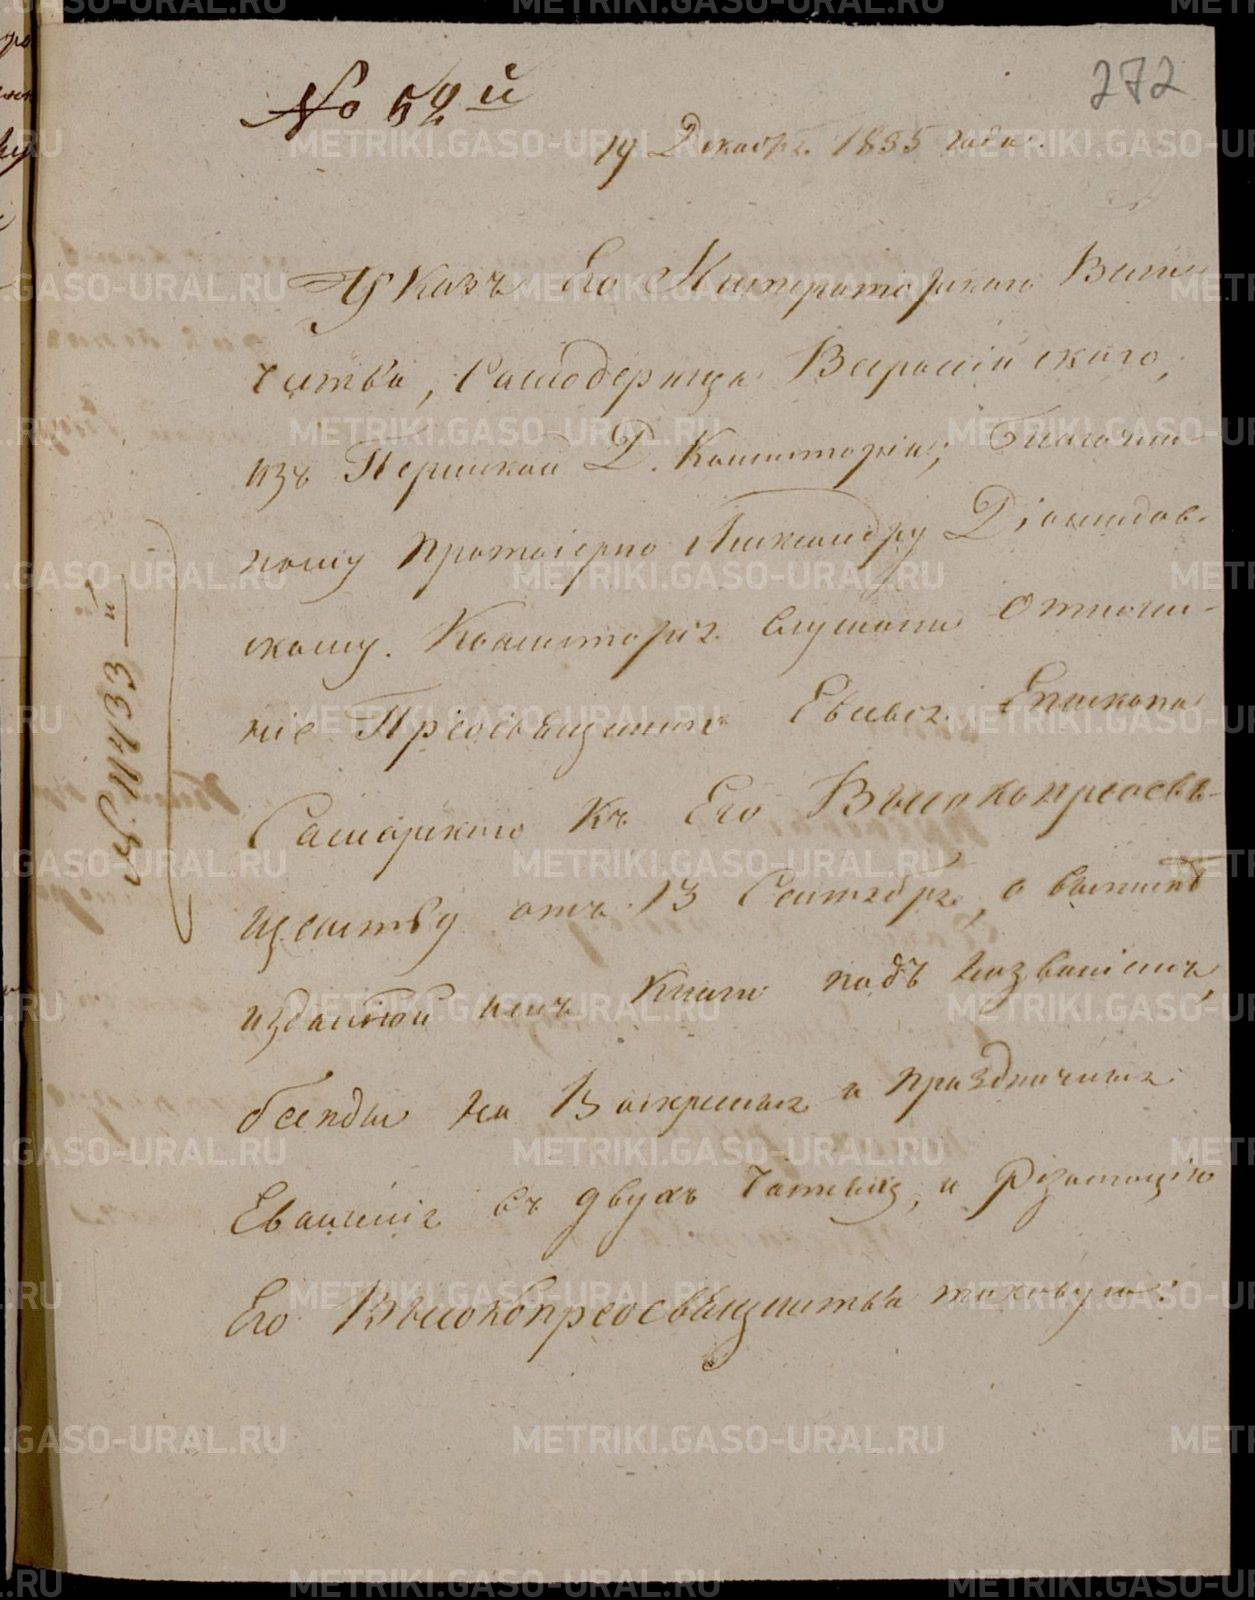 272
№ 52й
19 Декабря 1855 года.
Указъ Его Императорскаго Вели
чества, Самодержца Всероссійскаго,
изъ Пермской Д. Консисторіи, Благочин
ному Протоіерею Александру Діомидов
скому. Консисторія слушали Отноше-
ніе Преосвященнаго Евсевія Епископа
Самарскаго Къ Его Высокопреосвя-
щенству отъ 13 Сентября, о выпискѣ
изданной имъ Книги подъ названіемъ,
бесѣды на Воскресныя и праздничныя
Евангелія въ двухъ Частяхъ, и Резолюцію
Его Высокопреосвященства таковую:
№ 11433й
METRIKI.GASO-URAL.RU